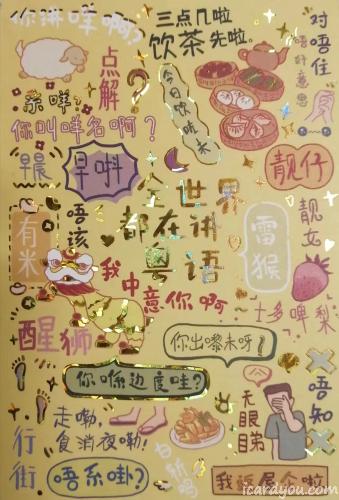 你讲咩啊?
三点几啦
饮茶先啦。
对唔住
唔好意思
点解?
今日饮咗未
系咩?
你叫咩名啊?
早晨
早唞
靓仔
全世界
都在讲
粤语
唔该
有米
雷猴
靓女
我中意你啊
士多啤梨
醒狮
你出嚟未呀?
你喺边度哇?
唔知
无眼睇
走嘞,
食消夜嘞!
行街
唔系卦?
icardyou.com